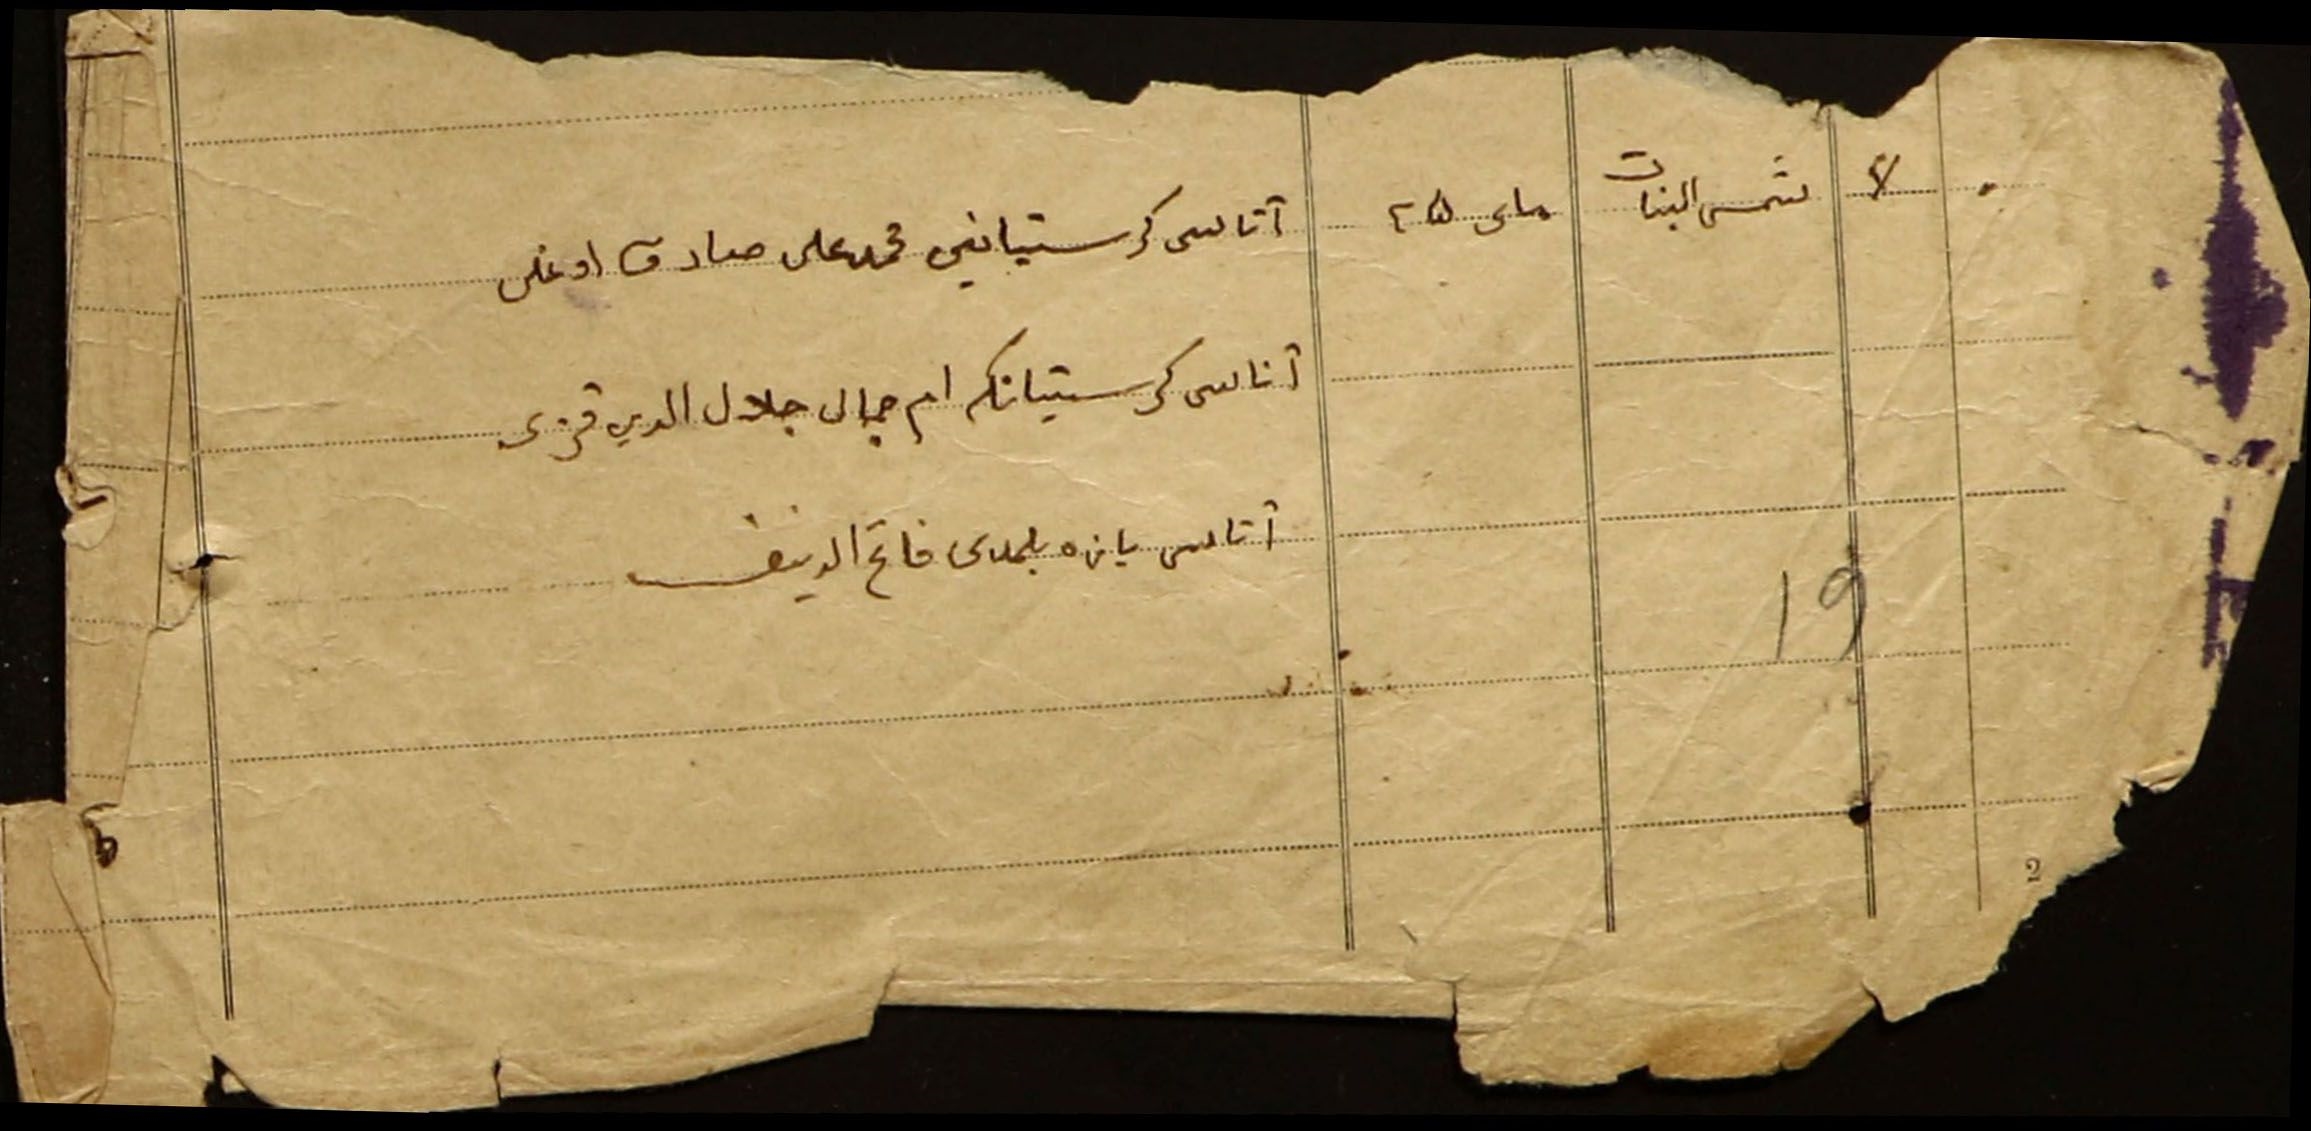 شمس البنات مای ٢٥ آتاسی کرستیانین محمد علی صادق اوغلی
آناسی کرستیانکه ام جمال جلال الدین قزی
آتاسی یازه بلمدی فاتح الدینف
19
2